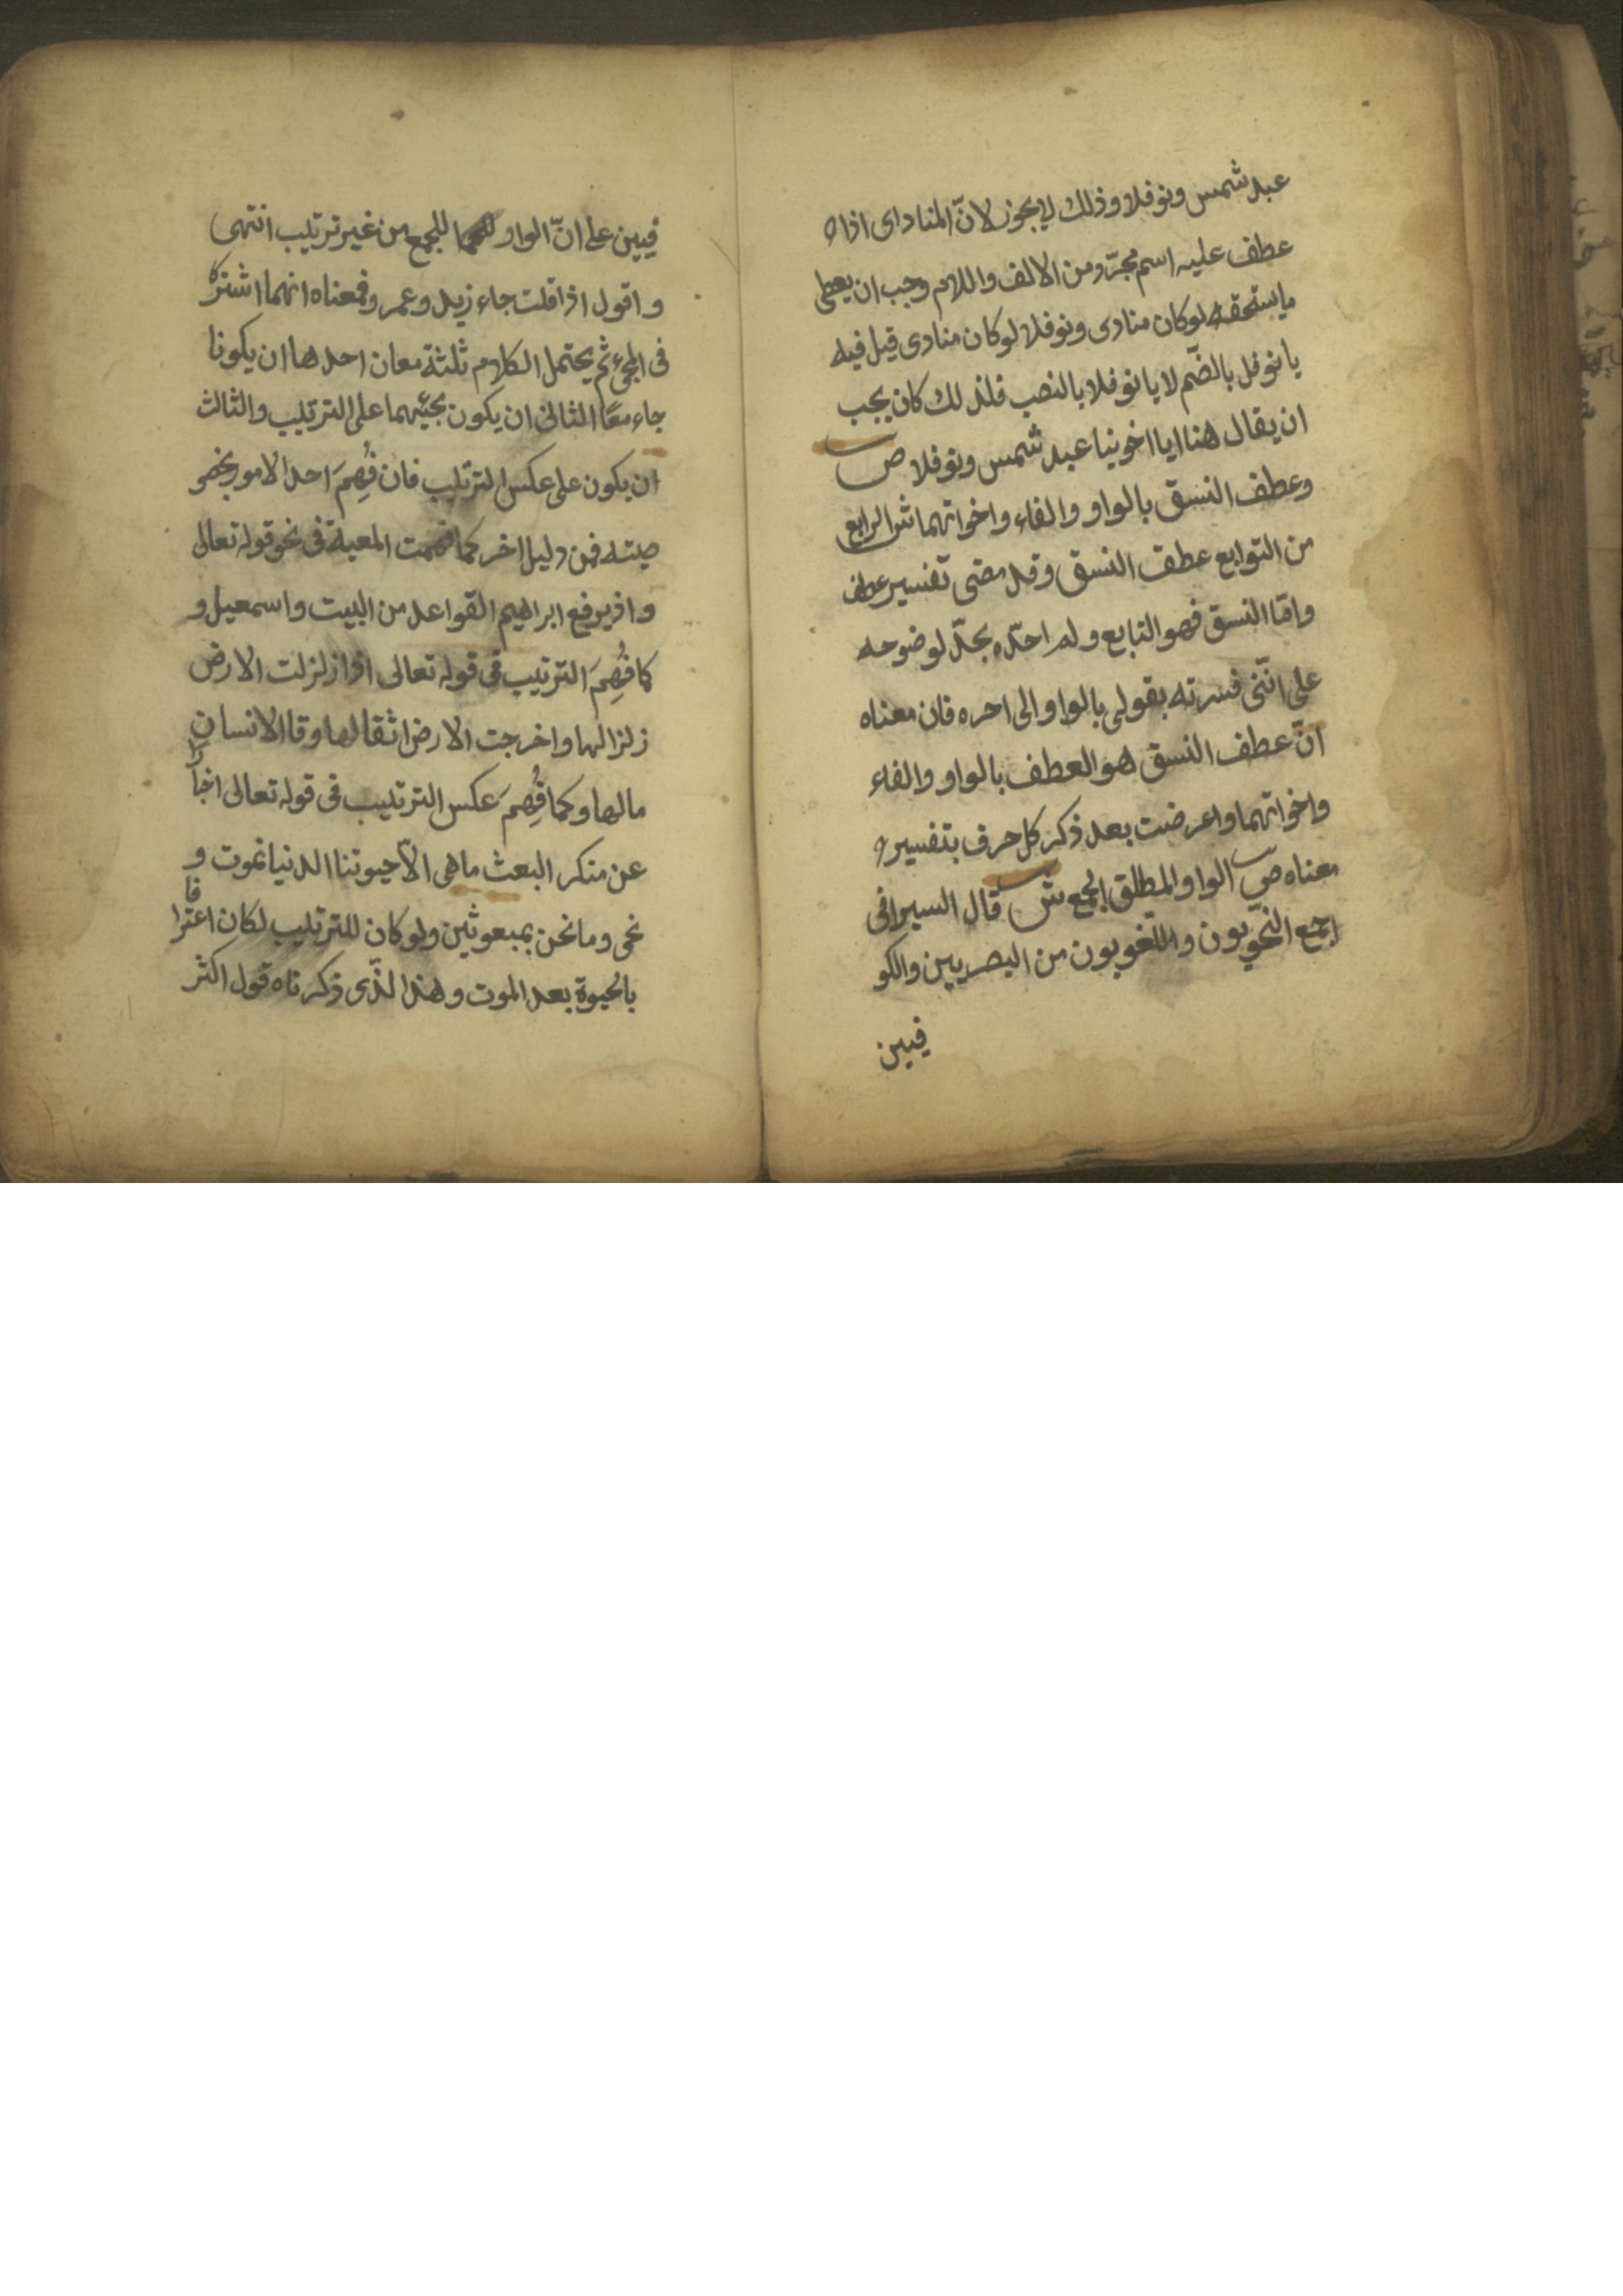 عبد شمس ونوفلا وذلك لا يجوز لانّ المنادى اذا
عطف عليه اسم مجرّد من الالف واللام وجب ان يعطى
ما يستحقه لوكان منادى ونوفلا لوكان منادى قيل فيه
يا نوفل بالضّم لا يا نوفلا بالنصب فلذلك كان يجب
ان يقال هنا ايا اخوينا عبد شمس ونوفلا ص
وعطف النسق بالواو والفاء واخواتهما ش الرابع
من التوابع عطف النسق وقد مضى تفسير عطف
وامّا النسق فهو التابع ولم احدّه بحدّ لوضوحه
على انّنى فسرته بقولى بالواو الى اخره فان معناه
انّ عطف النسق هو العطف بالواو والفاء
واخواتهما واعرضت بعد ذكر كل حرف بتفسير
معناه ص الواو المطلق الجمع ش قال السيرافى
اجمع النّحويون واللّغويون من البصريين والكو
فيين
فيين على انّ الواو للجمع من غير ترتيب انتهى
واقول اذا قلت جاء زيد وعمرو فمعناه انهما اشتركا
فى المجىء ثم يحتمل الكلام ثلثة معان احدها ان يكونا
جاء معًا الثانى ان يكون مجيئهما على الترتيب والثالث
ان يكون على عكس الترتيب فان فُهِمَ احد الامور بخصو
صيته فمن دليل اخر كما فهمت المعية فى نحو قوله تعالى
واذ يرفع ابراهيم القواعد من البيت واسمعيل و
كما فُهِمَ التّرتيب فى قوله تعالى اذا زلزلت الارض
زلزالها واخرجت الارض اثقالها وقا الانسان
مالها وكما فُهِمَ عكس الترتيب فى قوله تعالى اخبارًا
عن منكر البعث ما هى الّا حيوتنا الدنيا نموت و
نحى وما نحن بمبعوثين ولو كان للترتيب لكان اعترافا
بالحيوة بعد الموت وهذا الّذى ذكرناه قول اكثر